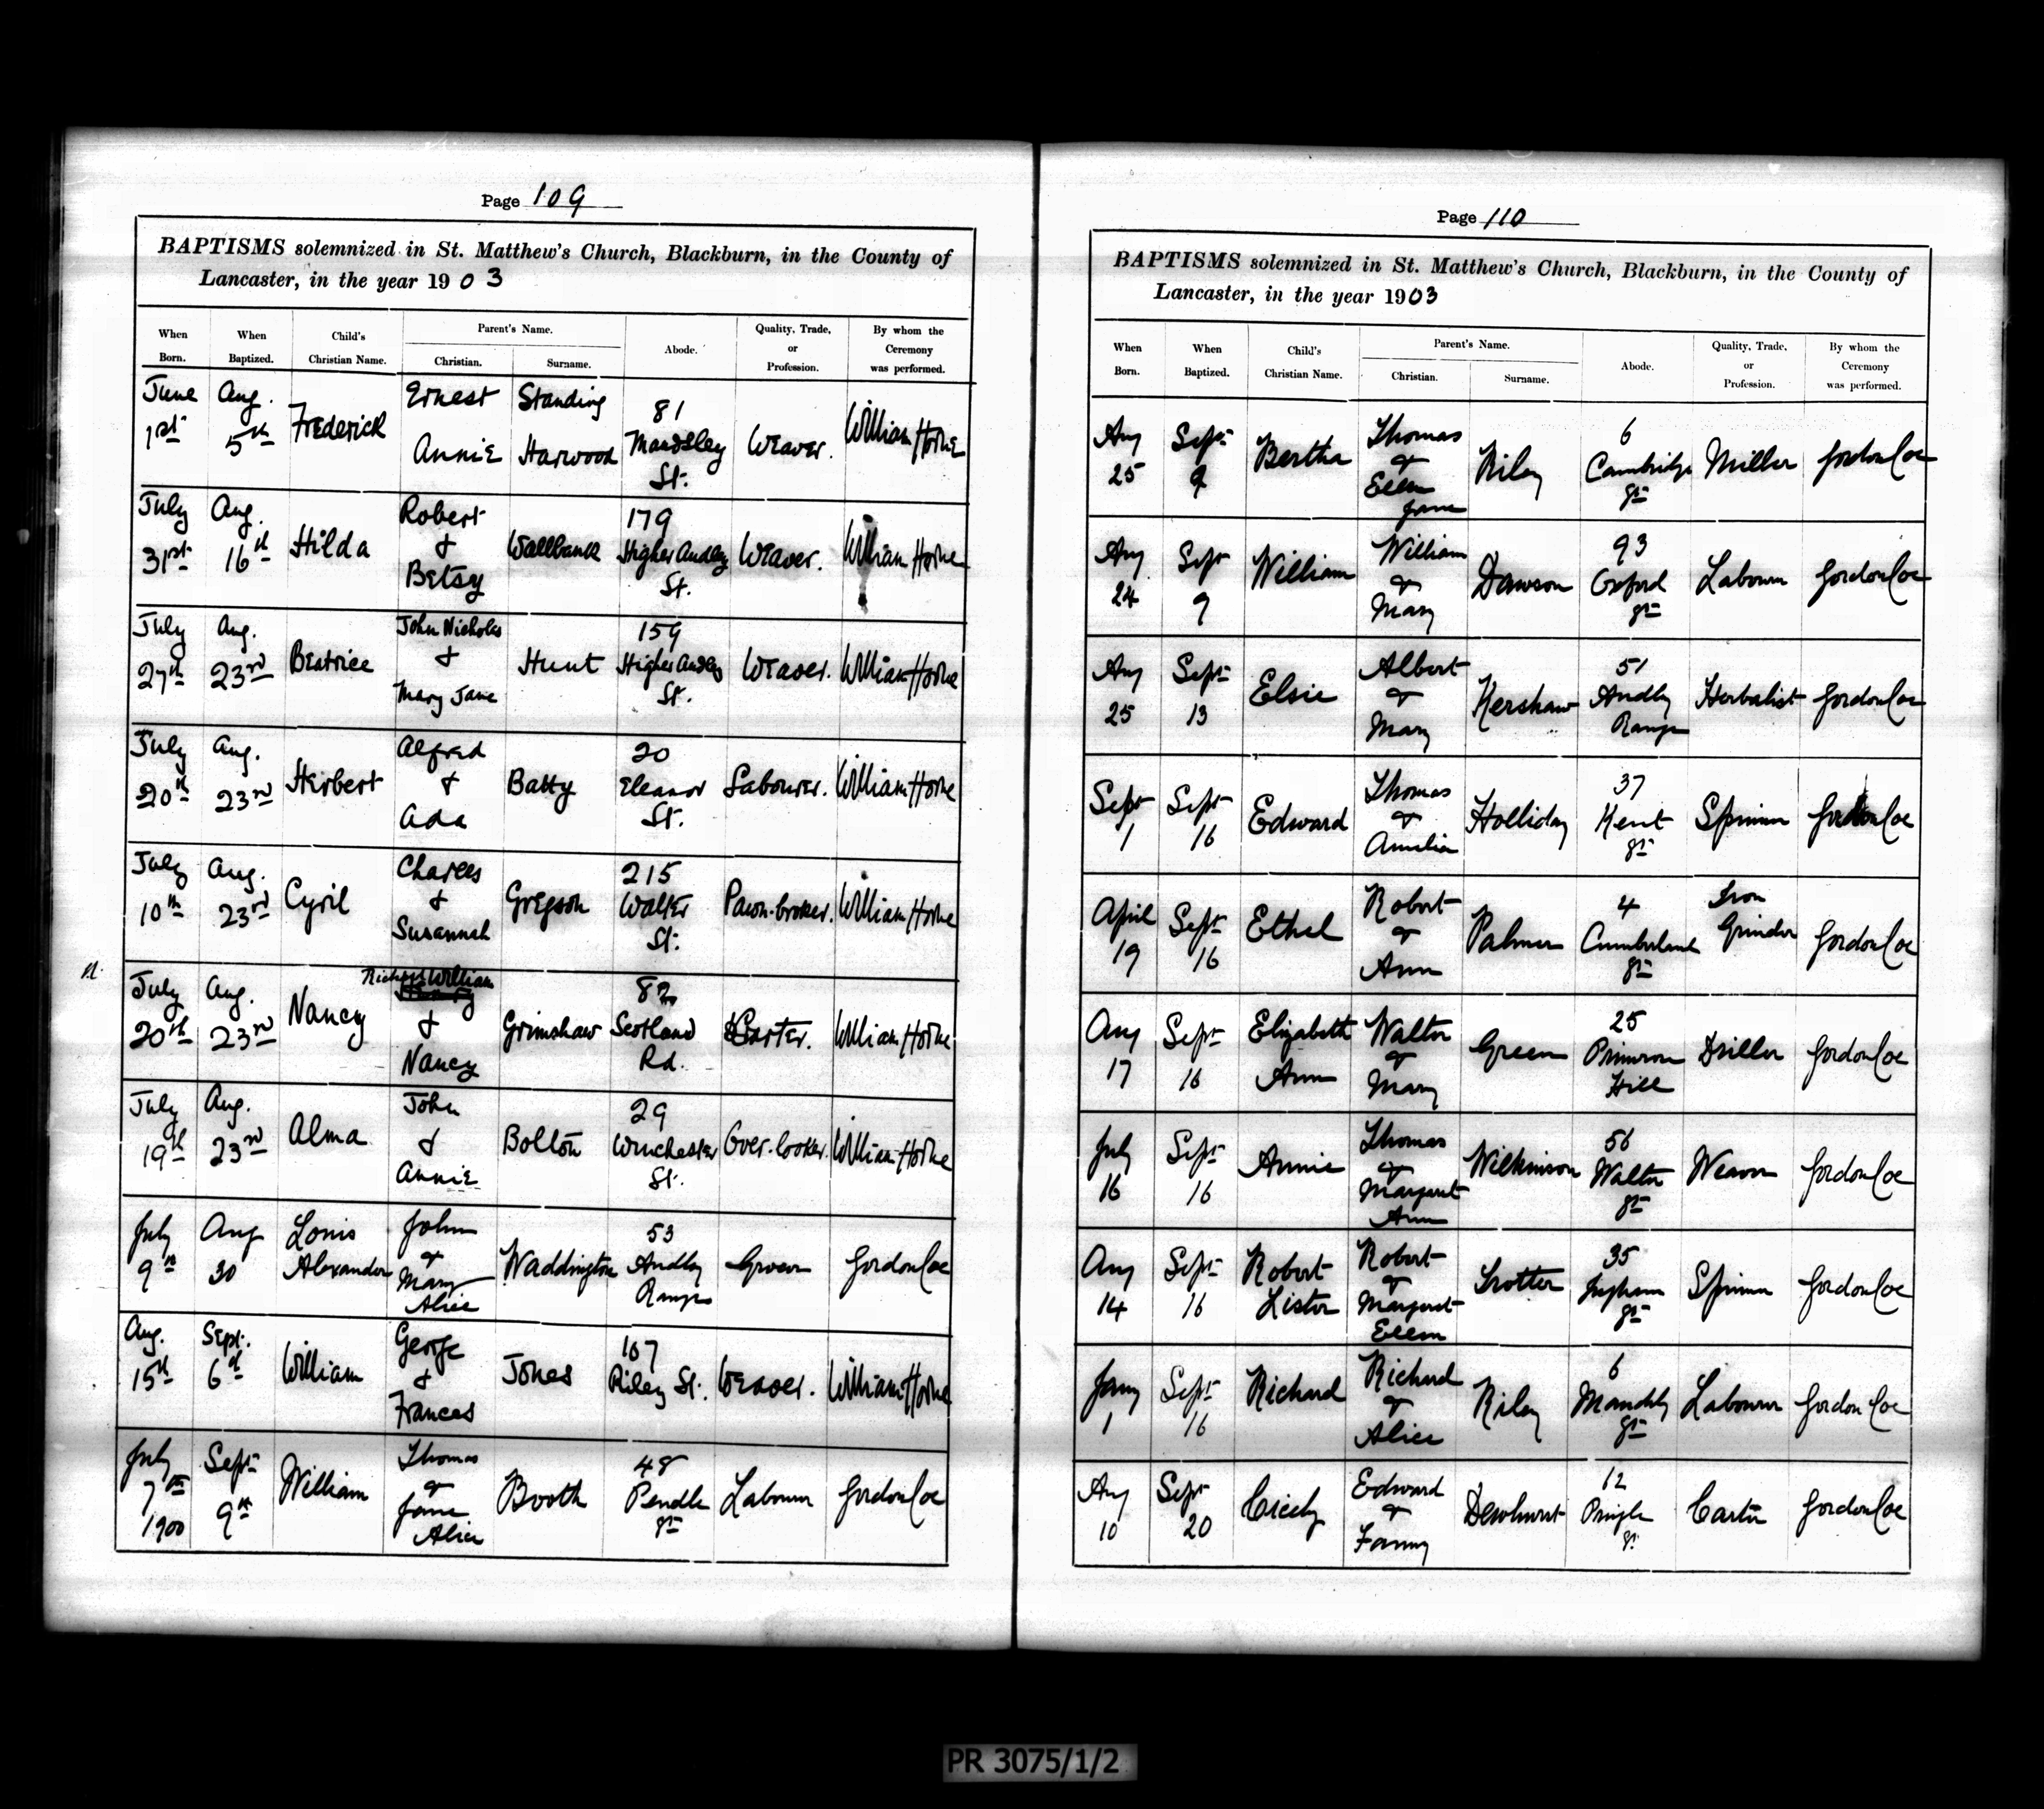 Page 109
BAPTISMS solemnized in St. Matthew's Church, Blackburn, in the County of
Lancaster, in the year 1903
When Born. When Baptized. Child's Christian Name. Parent's Name. Christian. Surname. Abode. Quality, Trade, or Profession. By whom the Ceremony was performed.
June 1st Aug. 5th Frederick Ernest Annie Standing Harwood 81 Maudsley St. Weaver. William Horne
July 31st Aug. 16th Hilda Robert & Betsy Wallbank 179 Higher Audley St. Weaver. William Horne
July 27th Aug. 23rd Beatrice John Nicholas & Mary Jane Hunt 159 Higher Audley St. Weaver. William Horne
July 20th Aug. 23rd Herbert Alfred & Ada Batty 20 Eleanor St. Labourer. William Horne
July 10th Aug. 23rd Cyril Charles & Susannah Gregson 215 Walter St. Pawn-broker. William Horne
July 20th Aug. 23rd Nancy Richard William & Nancy Grimshaw 82 Scotland Rd. Carter. William Horne
July 19th Aug. 23rd Alma John & Annie Bolton 29 Winchester St. Over-looker. William Horne
July 9th Aug 30 Louis Alexander John & Mary Alice Waddington 53 Audley Range Grocer Gordon Coe
Aug. 15th Sept. 6th William George & Frances Jones 107 Riley St. Weaver. William Horne
July 7th 1900 Sept 9th William Thomas & Jane Alice Booth 48 Pendle St Labourer Gordon Coe
Page 110
BAPTISMS solemnized in St. Matthew's Church, Blackburn, in the County of
Lancaster, in the year 1903
When Born. When Baptized. Child's Christian Name. Parent's Name. Christian. Surname. Abode. Quality, Trade, or Profession. By whom the Ceremony was performed.
Aug 25 Sept 9 Bertha Thomas & Ellen Jane Riley 6 Cambridge St Miller Gordon Coe
Aug 24 Sept 9 William William & Mary Dawson 93 Oxford St Labourer Gordon Coe
Aug 25 Sept 13 Elsie Albert & Mary Kershaw 51 Audley Range Herbalist Gordon Coe
Sept 1 Sept 16 Edward Thomas & Amelia Holliday 37 Kent St Spinner Gordon Coe
April 19 Sept 16 Ethel Robert & Ann Palmer 4 Cumberland St Iron Grinder Gordon Coe
Aug 17 Sept 16 Elizabeth Ann Walter & Mary Green 25 Primrose Hill Driller Gordon Coe
July 16 Sept 16 Annie Thomas & Margaret Ann Wilkinson 56 Walter St Weaver Gordon Coe
Aug 14 Sept 16 Robert Lister Robert & Margaret Ellen Trotter 35 Ingham St Spinner Gordon Coe
Jany 1 Sept 16 Richard Richard & Alice Riley 6 Maudsley St Labourer Gordon Coe
Aug 10 Sept 20 Cicely Edward & Fanny Dewhurst 12 Pringle St Carter Gordon Coe
PR 3075/1/2